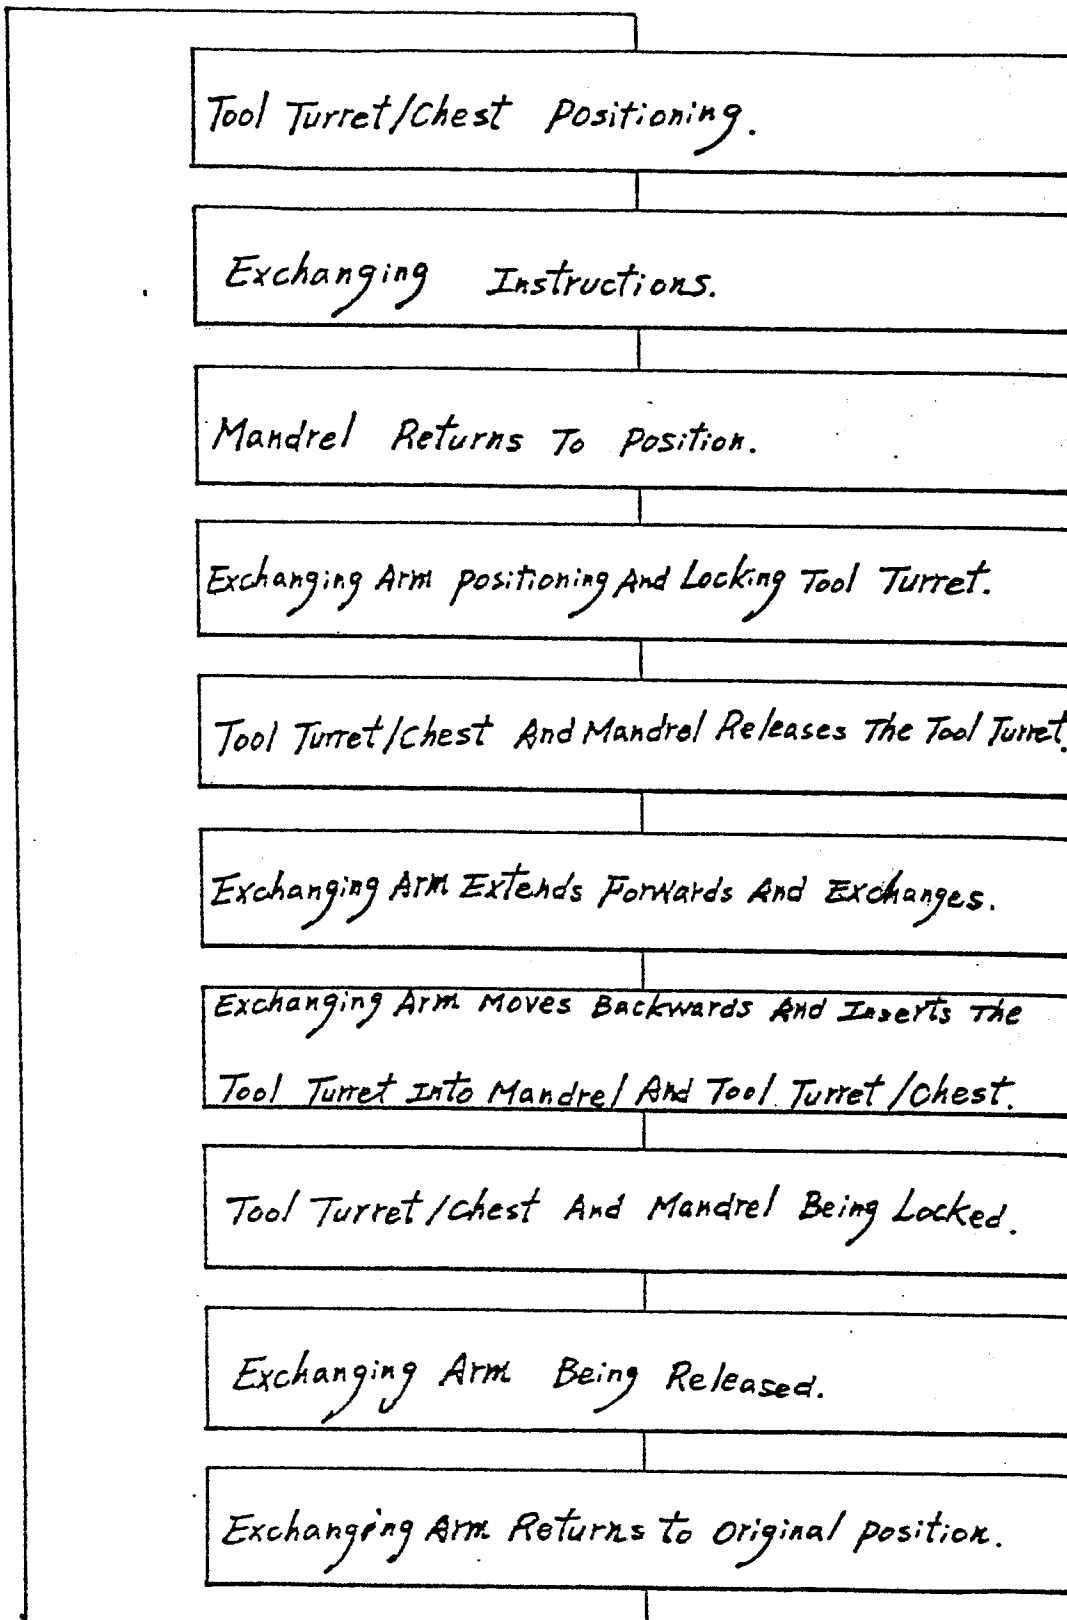 Tool Turret/Chest Positioning.
Exchanging Instructions.
Mandrel Returns To Position.
Exchanging Arm positioning And Locking Tool Turret.
Tool Turret/Chest And Mandrel Releases The Tool Turret.
Exchanging Arm Extends Forwards And Exchanges.
Exchanging Arm Moves Backwards And Inserts The
Tool Turret Into Mandrel And Tool Turret/Chest.
Tool Turret/Chest And Mandrel Being Locked.
Exchanging Arm Being Released.
Exchanging Arm Returns to Original position.